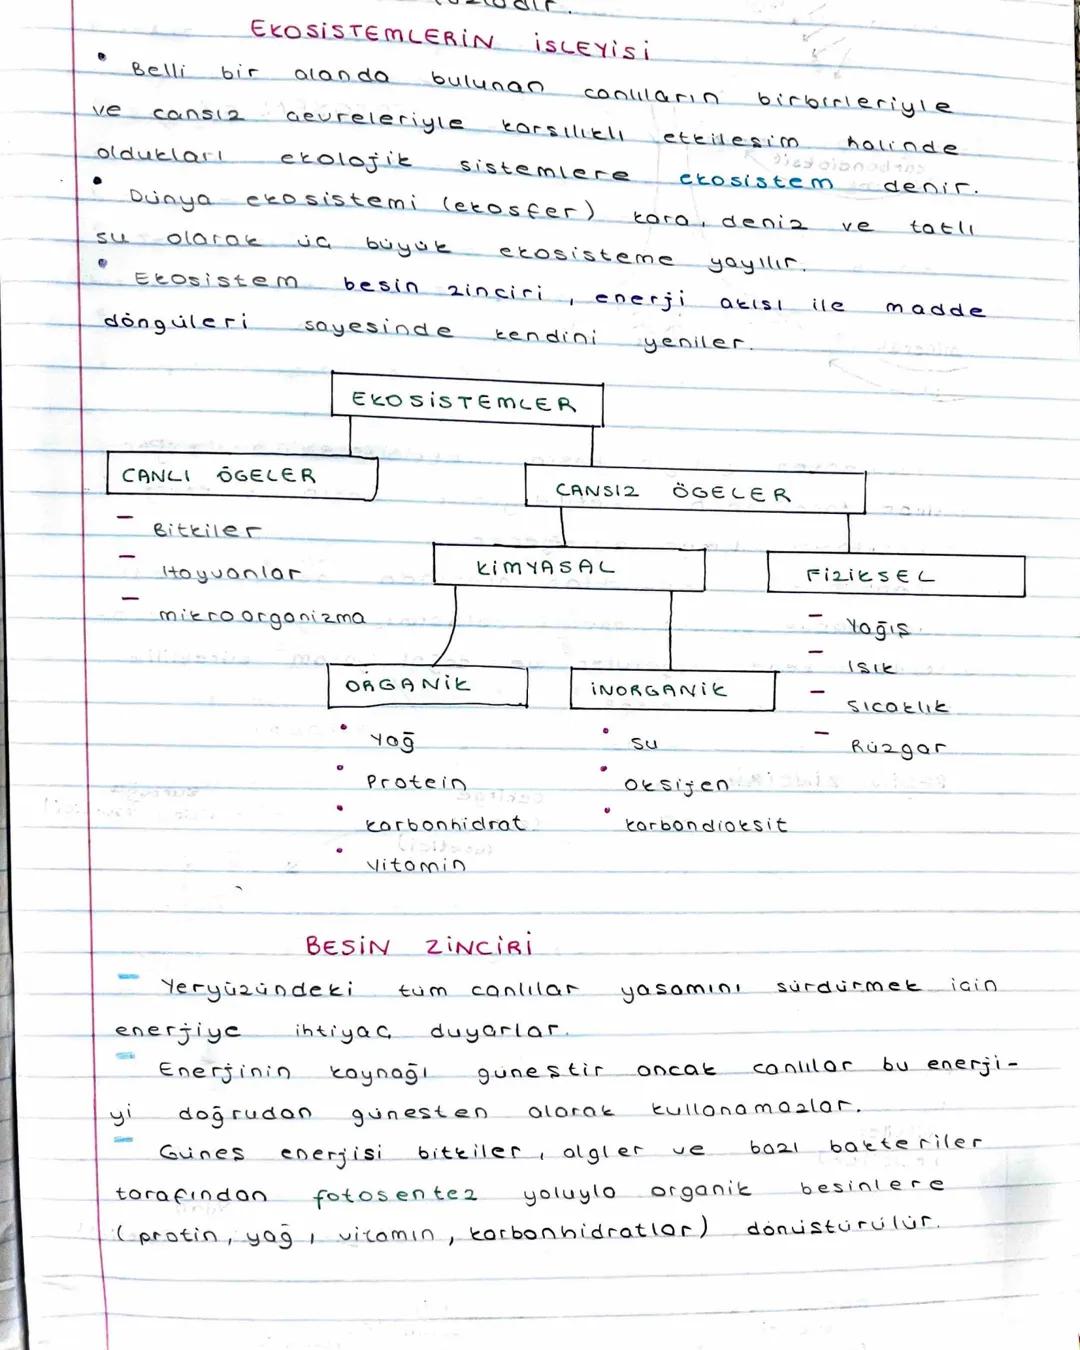 EKOSİSTEMLERİN İSLEYİSİ
• Belli bir alanda bulunan canlıların birbirleriyle
ve cansız çevreleriyle karsılıklı etkilesim halinde
oldukları ekolojik sistemlere ekosistem denir.
• Dünya ekosistemi (ekosfer) kara, deniz ve tatlı
su olarak üç büyük ekosisteme yayılır.
• Ekosistem besin zinciri, enerji akısı ile madde
döngüleri sayesinde kendini yeniler.
EKOSİSTEMLER
CANLI ÖGELER
CANSIZ ÖGELER
- Bitkiler
- Hayvanlar
- mikroorganizma
KİMYASAL
FİZİKSEL
- Yağıs
- Isık
- Sıcaklık
- Rüzgar
ORGANİK
İNORGANİK
• Yağ
• Protein
• karbonhidrat
• Vitamin
• su
• Oksijen
• karbondioksit
BESİN ZİNCİRİ
- Yeryüzündeki tüm canlılar yasamını sürdürmek için
enerjiye ihtiyaç duyarlar.
- Enerjinin kaynağı günestir ancak canlılar bu enerji-
yi doğrudan günesten alarak kullanamazlar.
- Günes enerjisi bitkiler, algler ve bazı bakteriler
tarafından fotosentez yoluyla organik besinlere
(protin, yağ, vitamin, karbonhidratlar) dönüstürülür.